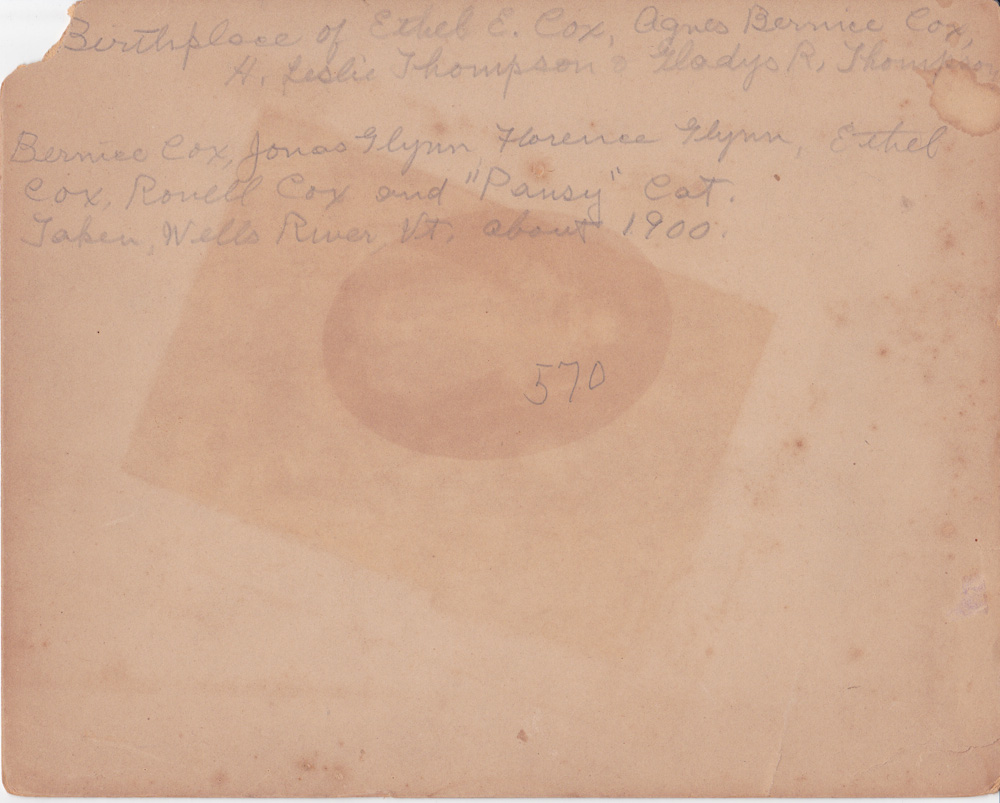 Birthplace of Ethel E. Cox, Agnes Bernice Cox,
H. Leslie Thompson & Gladys R. Thompson
Bernice Cox, Jonas Glynn, Florence Glynn, Ethel
Cox, Rowell Cox and "Pansy" Cat.
Taken, Wells River, Vt. about 1900.
570